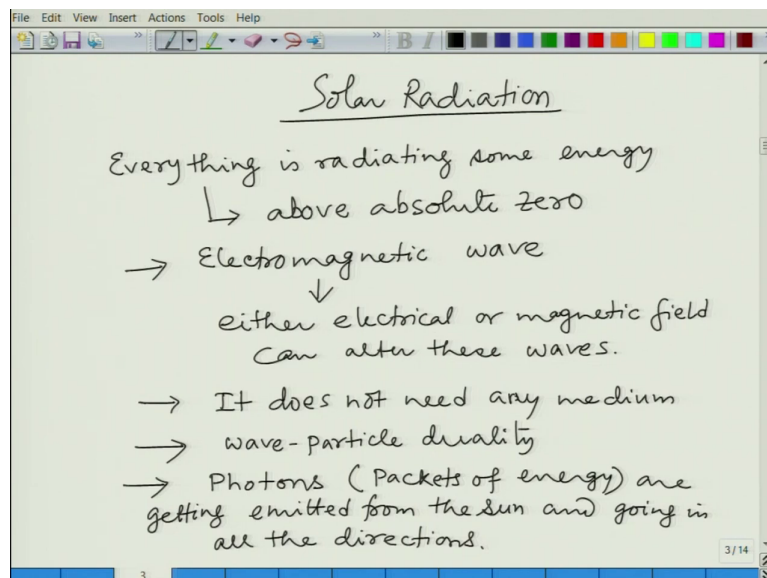 File Edit View Insert Actions Tools Help
B I
Solar Radiation
Everything is radiating some energy
↳ above absolute zero
→ Electromagnetic wave
↓
either electrical or magnetic field
can alter these waves.
→ It does not need any medium
→ wave-particle duality
→ Photons (Packets of energy) are
getting emitted from the sun and going in
all the directions.
3/14
3